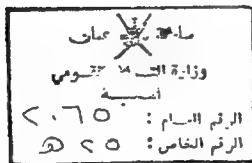 سلطنة عمان
وزارة التراث القومي
الرقم العام : ٢٠٦٥
الرقم الخاص : ٢٥